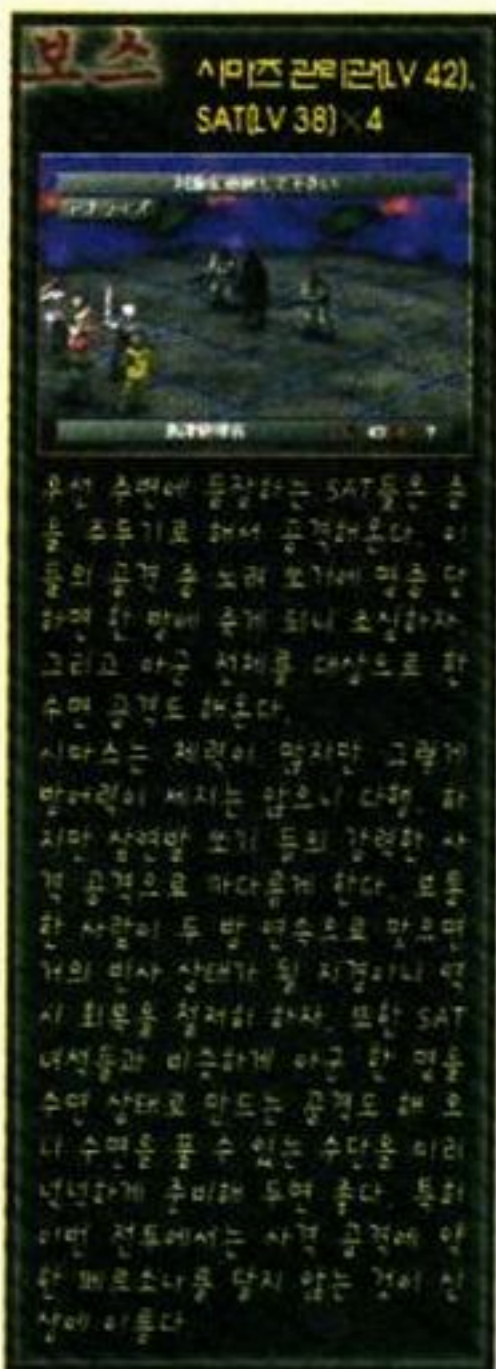 보스
시마즈 관리관(LV 42),
SAT(LV 38)×4
우선 주변에 등장하는 SAT들은 총
을 주무기로 해서 공격해온다. 이
들의 공격 중 노려 쏘기에 명중 당
하면 한 방에 죽게 되니 조심하자.
그리고 아군 전체를 대상으로 한
수면 공격도 해온다.
시마즈는 체력이 많지만 그렇게
방어력이 세지는 않으니 다행. 하
지만 삼연발 쏘기 등의 강력한 사
격 공격으로 까다롭게 한다. 보통
한 사람이 두 방 연속으로 맞으면
거의 빈사 상태가 될 지경이니 역
시 회복을 철저히 하자. 또한 SAT
녀석들과 비슷하게 아군 한 명을
수면 상태로 만드는 공격도 해 오
니 수면을 풀 수 있는 수단을 미리
넉넉하게 준비해 두면 좋다. 특히
이번 전투에서는 사격 공격에 약
한 페르소나를 달지 않는 것이 신
상에 이롭다.